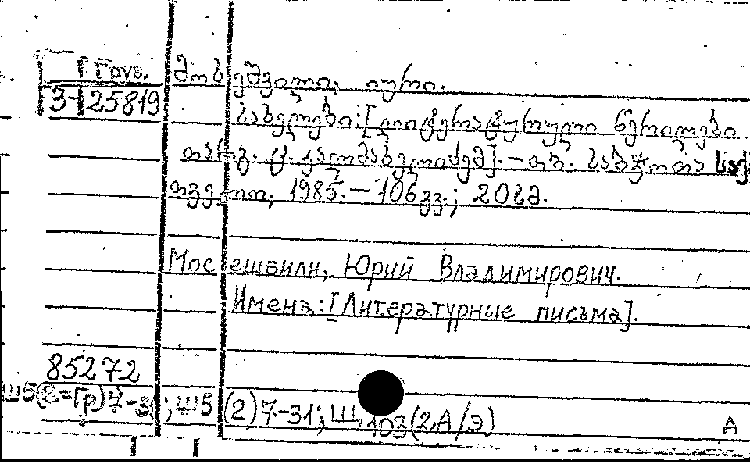 Груз. მოსეშვილი, იური.
3-25819
სახელები: [ლიტერატურული წერილები.
თარგ. კ. — თბ. საბჭოთა
1985. — 106 გვ.; 20სმ.
Мосешвили, Юрий Владимирович.
Имена: [Литературные письма].
85272
Ш5(2=Гр)7-3; Ш5(2)7-31; Ш 103(2А/Э)
А